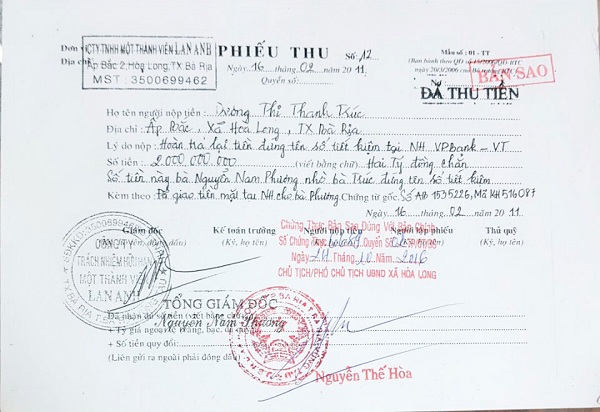 Đơn vị: CTY TNHH MỘT THÀNH VIÊN LAN ANH
Địa chỉ: Ấp Bắc 2, Hòa Long, TX Bà Rịa
MST: 3500699462
PHIẾU THU Số: 12
Ngày 16 tháng 02 năm 2011
Quyển số:
Mẫu số : 01 - TT
BẢN SAO
ĐÃ THU TIỀN
Họ tên người nộp tiền: Dương Thị Thanh Trúc
Địa chỉ: Ấp Bắc, Xã Hoà Long, TX Bà Rịa
Lý do nộp: Hoàn trả lại tiền đứng tên sổ tiết kiệm tại NH VPBank - VT
Số tiền: 2.000.000.000 (viết bằng chữ) Hai Tỷ đồng chẵn
Số tiền này bà Nguyễn Nam Phương nhờ bà Trúc đứng tên sổ tiết kiệm
Kèm theo: Đã giao tiền mặt tại NH cho bà Phương Chứng từ gốc: Số AB 1535226, Mã KH 516087
Ngày 16 tháng 02 năm 2011
Giám đốc Kế toán trưởng Người nộp tiền Người lập phiếu Thủ quỹ
(Ký, họ tên) (Ký, họ tên) (Ký, họ tên)
Chứng Thực Bản Sao Đúng Với Bản Chính
Số Chứng Quyển Số
Ngày Tháng 10 Năm 2016
CHỦ TỊCH/PHÓ CHỦ TỊCH UBND XÃ HÒA LONG
CÔNG TY
TRÁCH NHIỆM HỮU HẠN
MỘT THÀNH VIÊN
LAN ANH
TỔNG GIÁM ĐỐC
Nguyễn Nam Phương
Đã nhận đủ số tiền (viết bằng chữ)
+ Tỷ giá ngoại tệ
+ Số tiền quy đổi:
(Liên gửi ra ngoài phải đóng dấu)
Nguyễn Thế Hòa